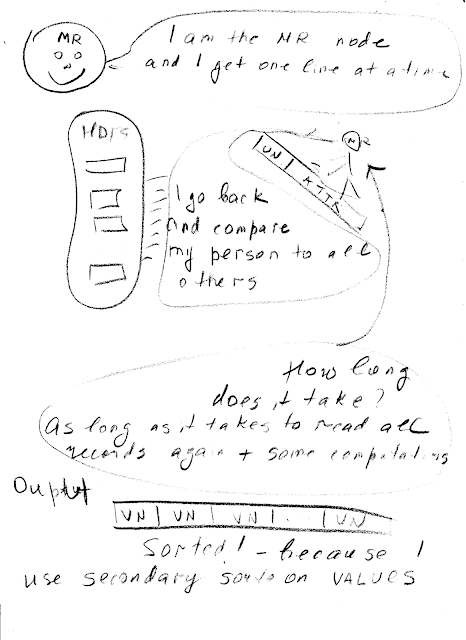 MR
I am the MR node
and I get one line at a time
HDFS
MR
UN | ATTR
I go back
and compare
my person to all
others
How long
does it take?
As long as it takes to read all
records again + some computations
Ouptut
UN | UN | UN | . | UN
Sorted! - because I
use secondary on VALUES